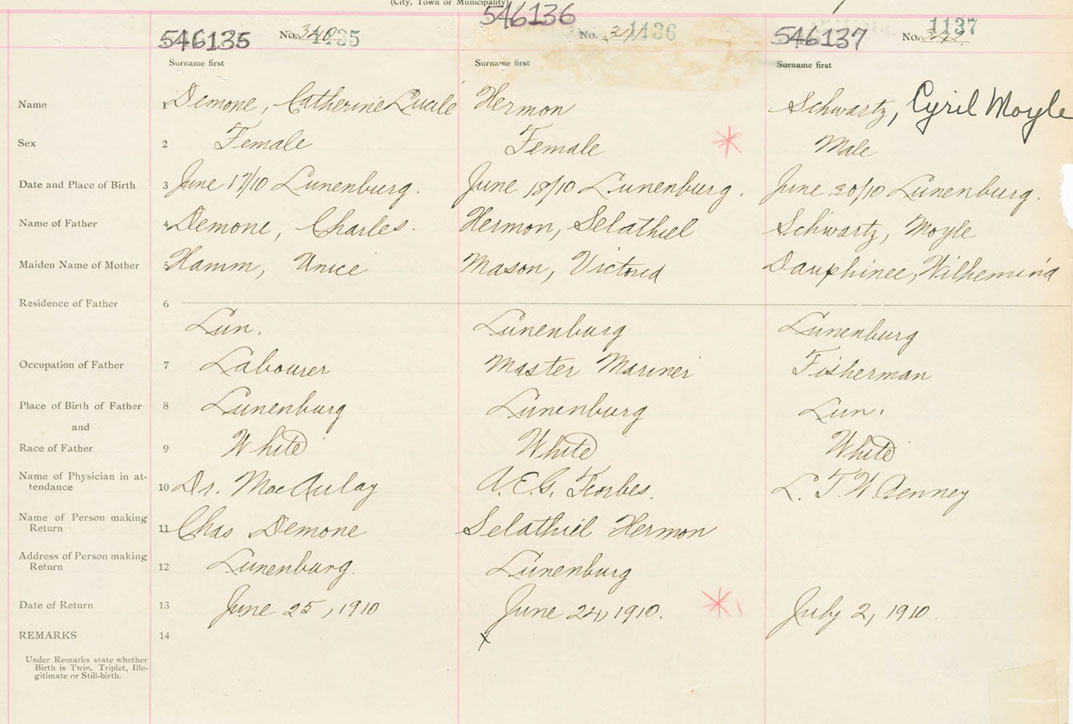 (City, Town or Municipality)
546135 No. 340 1135 546136 No. 341 1136 546137 No. 1137
Surname first Surname first Surname first
Name 1 Demone, Catherine Lucile Hermon Schwartz, Cyril Moyle
Sex 2 Female Female * Male
Date and Place of Birth 3 June 17/10 Lunenburg. June 18/10 Lunenburg. June 20/10 Lunenburg.
Name of Father 4 Demone, Charles. Hermon, Selathiel Schwartz, Moyle
Maiden Name of Mother 5 Hamm, Unice Mason, Victoria Dauphinee, Wilhemina
Residence of Father 6
Lun. Lunenburg Lunenburg
Occupation of Father 7 Labourer Master Mariner Fisherman
Place of Birth of Father 8 Lunenburg Lunenburg Lun.
and
Race of Father 9 White White White
Name of Physician in at-
tendance 10 Dr. MacAulay A.E.G. Forbes.
Name of Person making
Return 11 Chas Demone Selathiel Hermon
Address of Person making
Return 12 Lunenburg. Lunenburg
Date of Return 13 June 25, 1910 June 24, 1910. * July 2, 1910
REMARKS 14 x
Under Remarks state whether
Birth is Twin, Triplet, Ille-
gitimate or Still-birth.